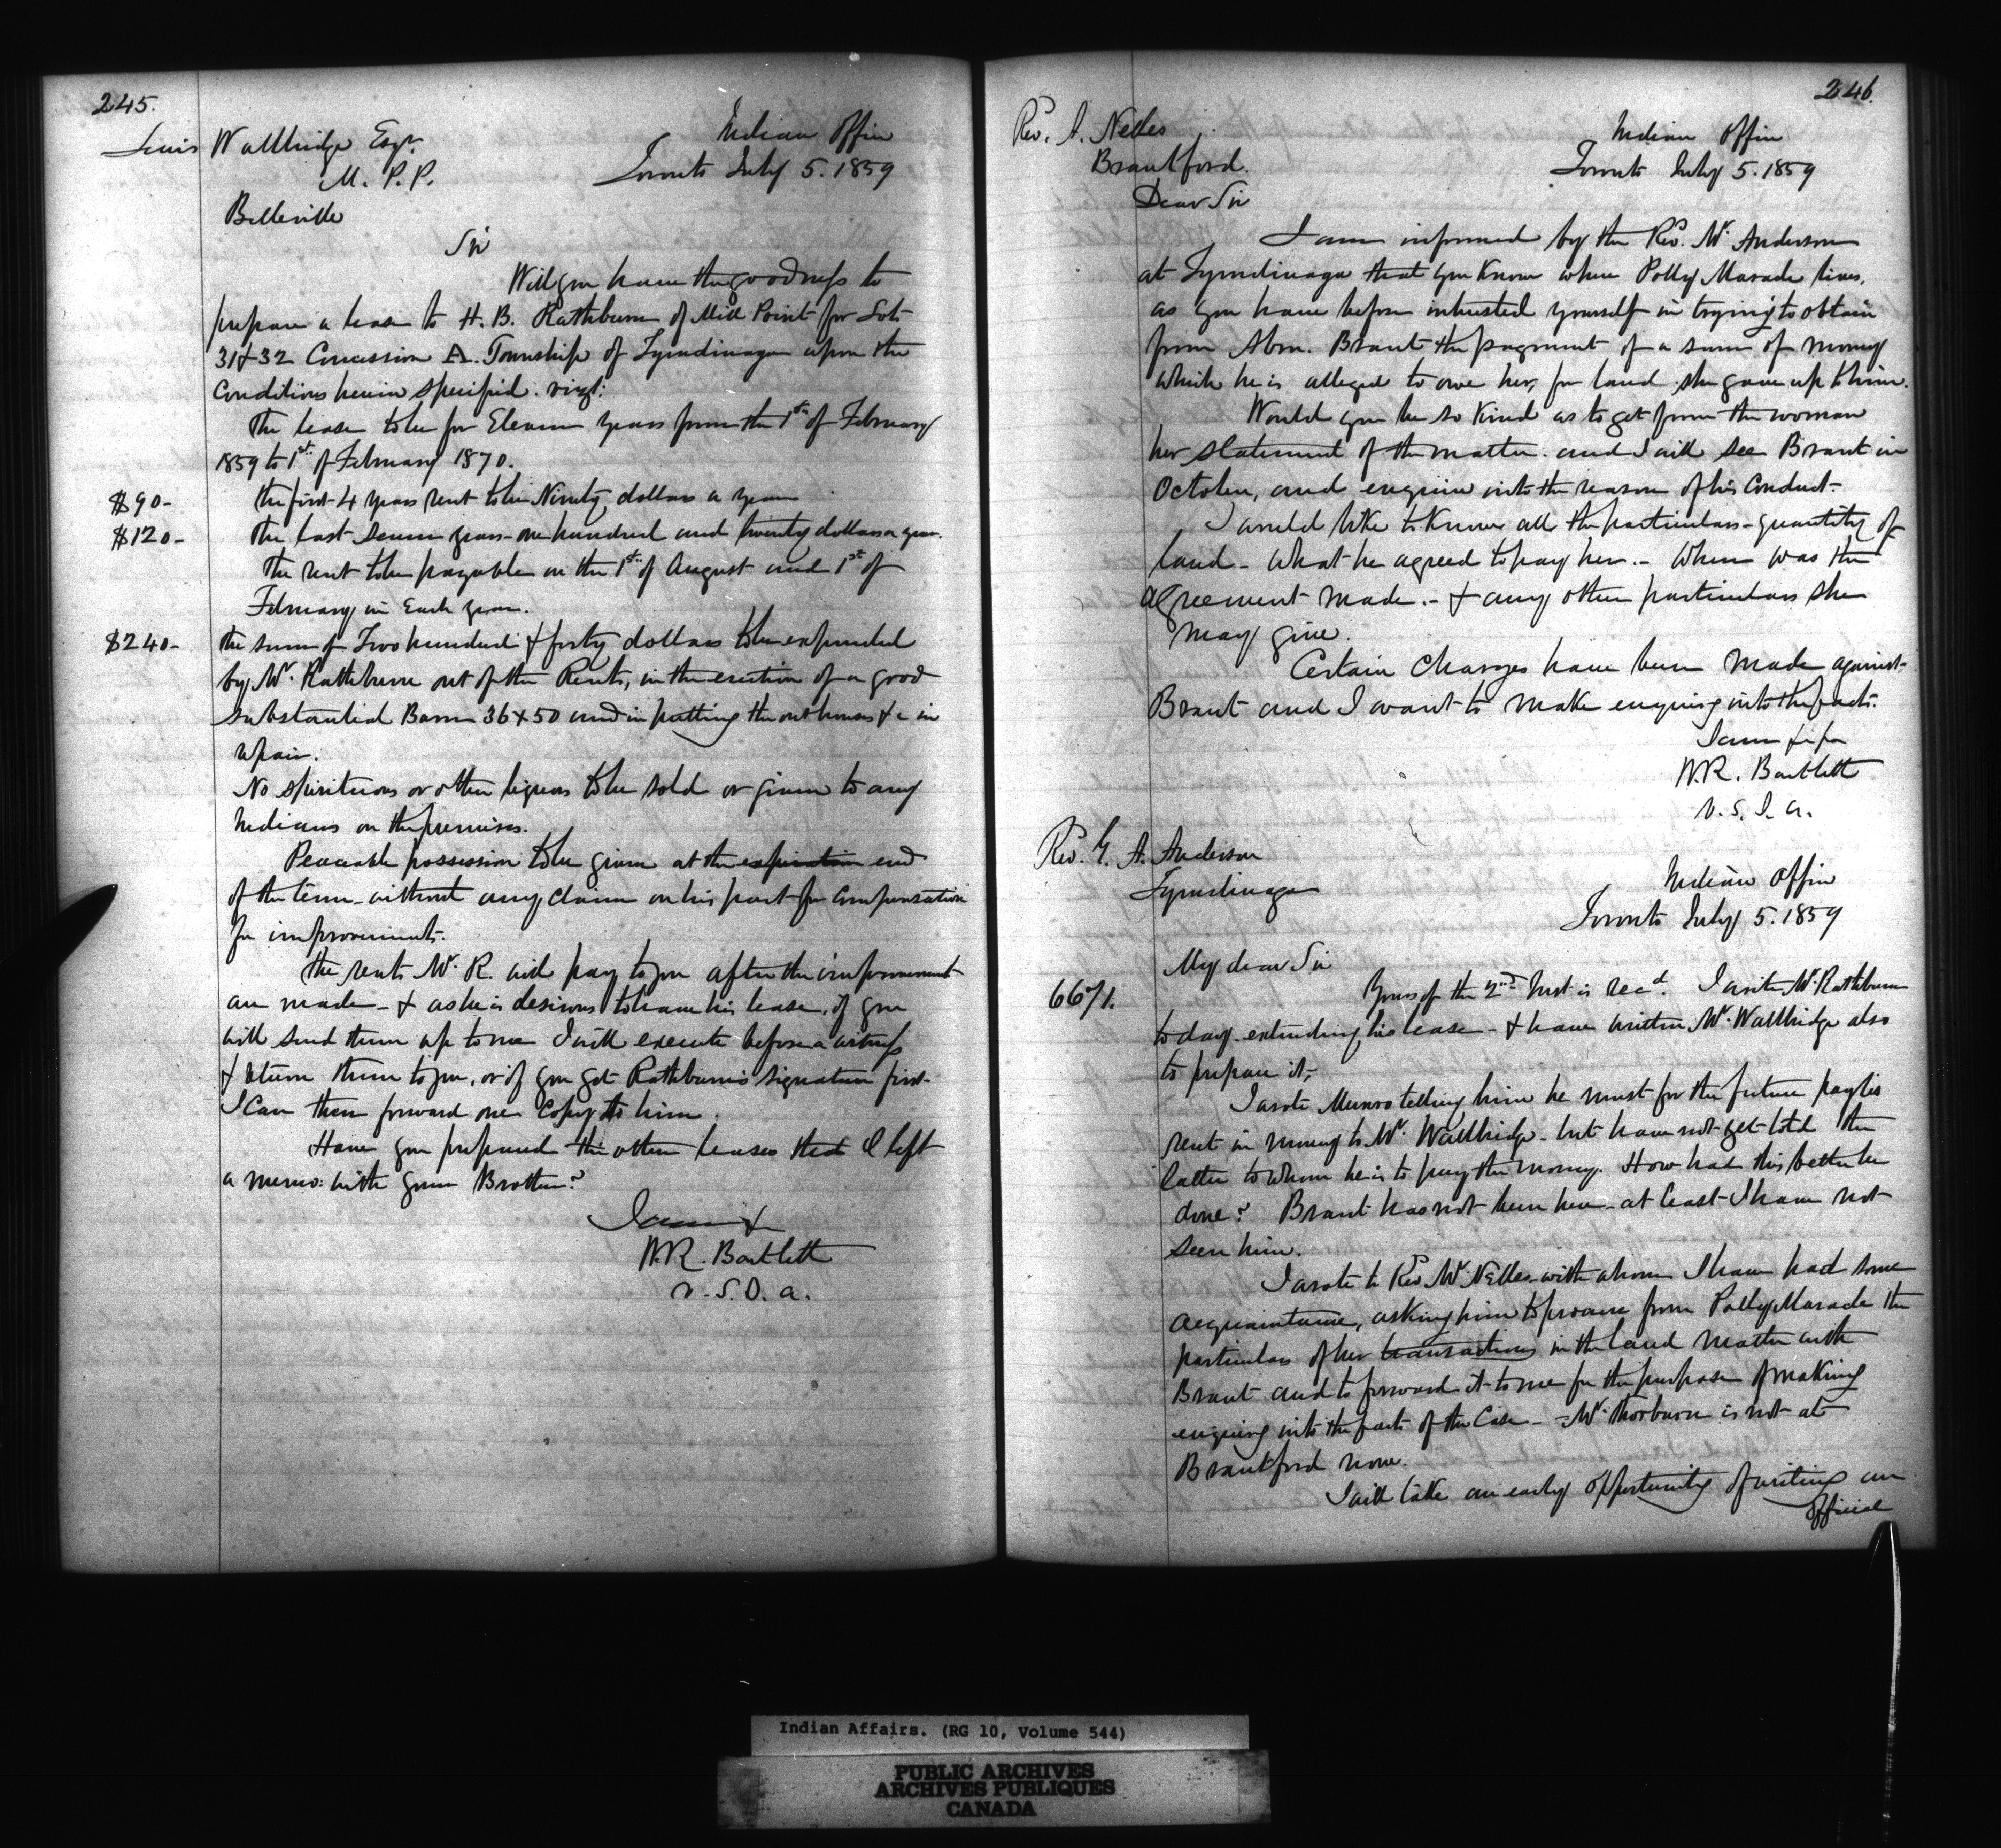 245.
Lewis Wallbridge Esqr.
M. P. P.
Belleville
Indian Office
Toronto July 5. 1859
Sir
Will you have the goodness to
prepare a lease to H. B. Rathbun of Mill Point for Lots
31 & 32 Concession A. Township of Tyendinaga upon the
Conditions herein specified. vizt:
The lease to be for Eleven years from the 1st of February
1859 to 1st of February 1870.
$90- the first 4 years rent to be Ninety dollars a year
$120- The last seven years - one hundred and twenty dollars a year.
The rent to be payable on the 1st of August and 1st of
February in Each year.
$240- The sum of Two hundred & forty dollars to be expended
by Mr. Rathburn out of the Rents, in the erection of a good
substantial Barn 36 x 50 and in putting the outhouses &c in
repair.
No spirituous or other liquors to be sold or given to any
Indians on the premises.
Peaceable possession to be given at the expiration end
of the term - without any claim on his part for compensation
for improvements.
The rents Mr. R. will pay to you after the improvements
are made - & as he is desirous to have his lease, if you
will send them up to me I will execute before a witness
& return them to you, or if you get Rathburn's signature first -
I can then forward one Copy to him.
Have you prepared the other leases that I left
a memo: with your Brother?
I am &
W.R. Bartlett
V.S.I.A.
246.
Rev. A. Nelles
Brantford.
Indian Office
Toronto July 5. 1859
Dear Sir
I am informed by the Revd. Mr. Anderson
at Tyendinaga that you know where Polly Maracle lives,
as you have before interested yourself in trying to obtain
from Abm. Brant the payment of a sum of money
which he is alleged to owe her, for land she gave up to him.
Would you be so kind as to get from the woman
her statement of the matter. and I will see Brant in
October, and enquire into the reason of his conduct.
I would like to know all the particulars - quantity of
land - what he agreed to pay her. - When was the
agreement made. - & any other particulars she
may give.
Certain charges have been made against
Brant and I want to make enquiry into the facts.
I am
W.R. Bartlett
V.S.I.A.
Rev. G. A. Anderson
Tyendinaga
Indian Office
Toronto July 5. 1859
My dear Sir
6671. Yours of the 2nd Inst is recd. I write Mr. Rathburn
to day - extending his lease - & have written Mr. Wallbridge also
to prepare it,
I wrote Munro telling him he must for the future pay his
rent in money to Mr. Wallbridge - but have not yet told the
latter to whom he is to pay the money. How had this better be
done? Brant has not been here - at least I have not
seen him.
I wrote to Revd. Mr. Nelles with whom I have had some
acquaintance, asking him to procure from Polly Maracle the
particulars of her transactions in the land matter with
Brant and to forward it to me for the purpose of making
enquiry into the facts of the Case - Mr. Thorburn is not at
Brantford now.
I will take an early opportunity of writing an
official
Indian Affairs. (RG 10, Volume 544)
PUBLIC ARCHIVES
ARCHIVES PUBLIQUES
CANADA